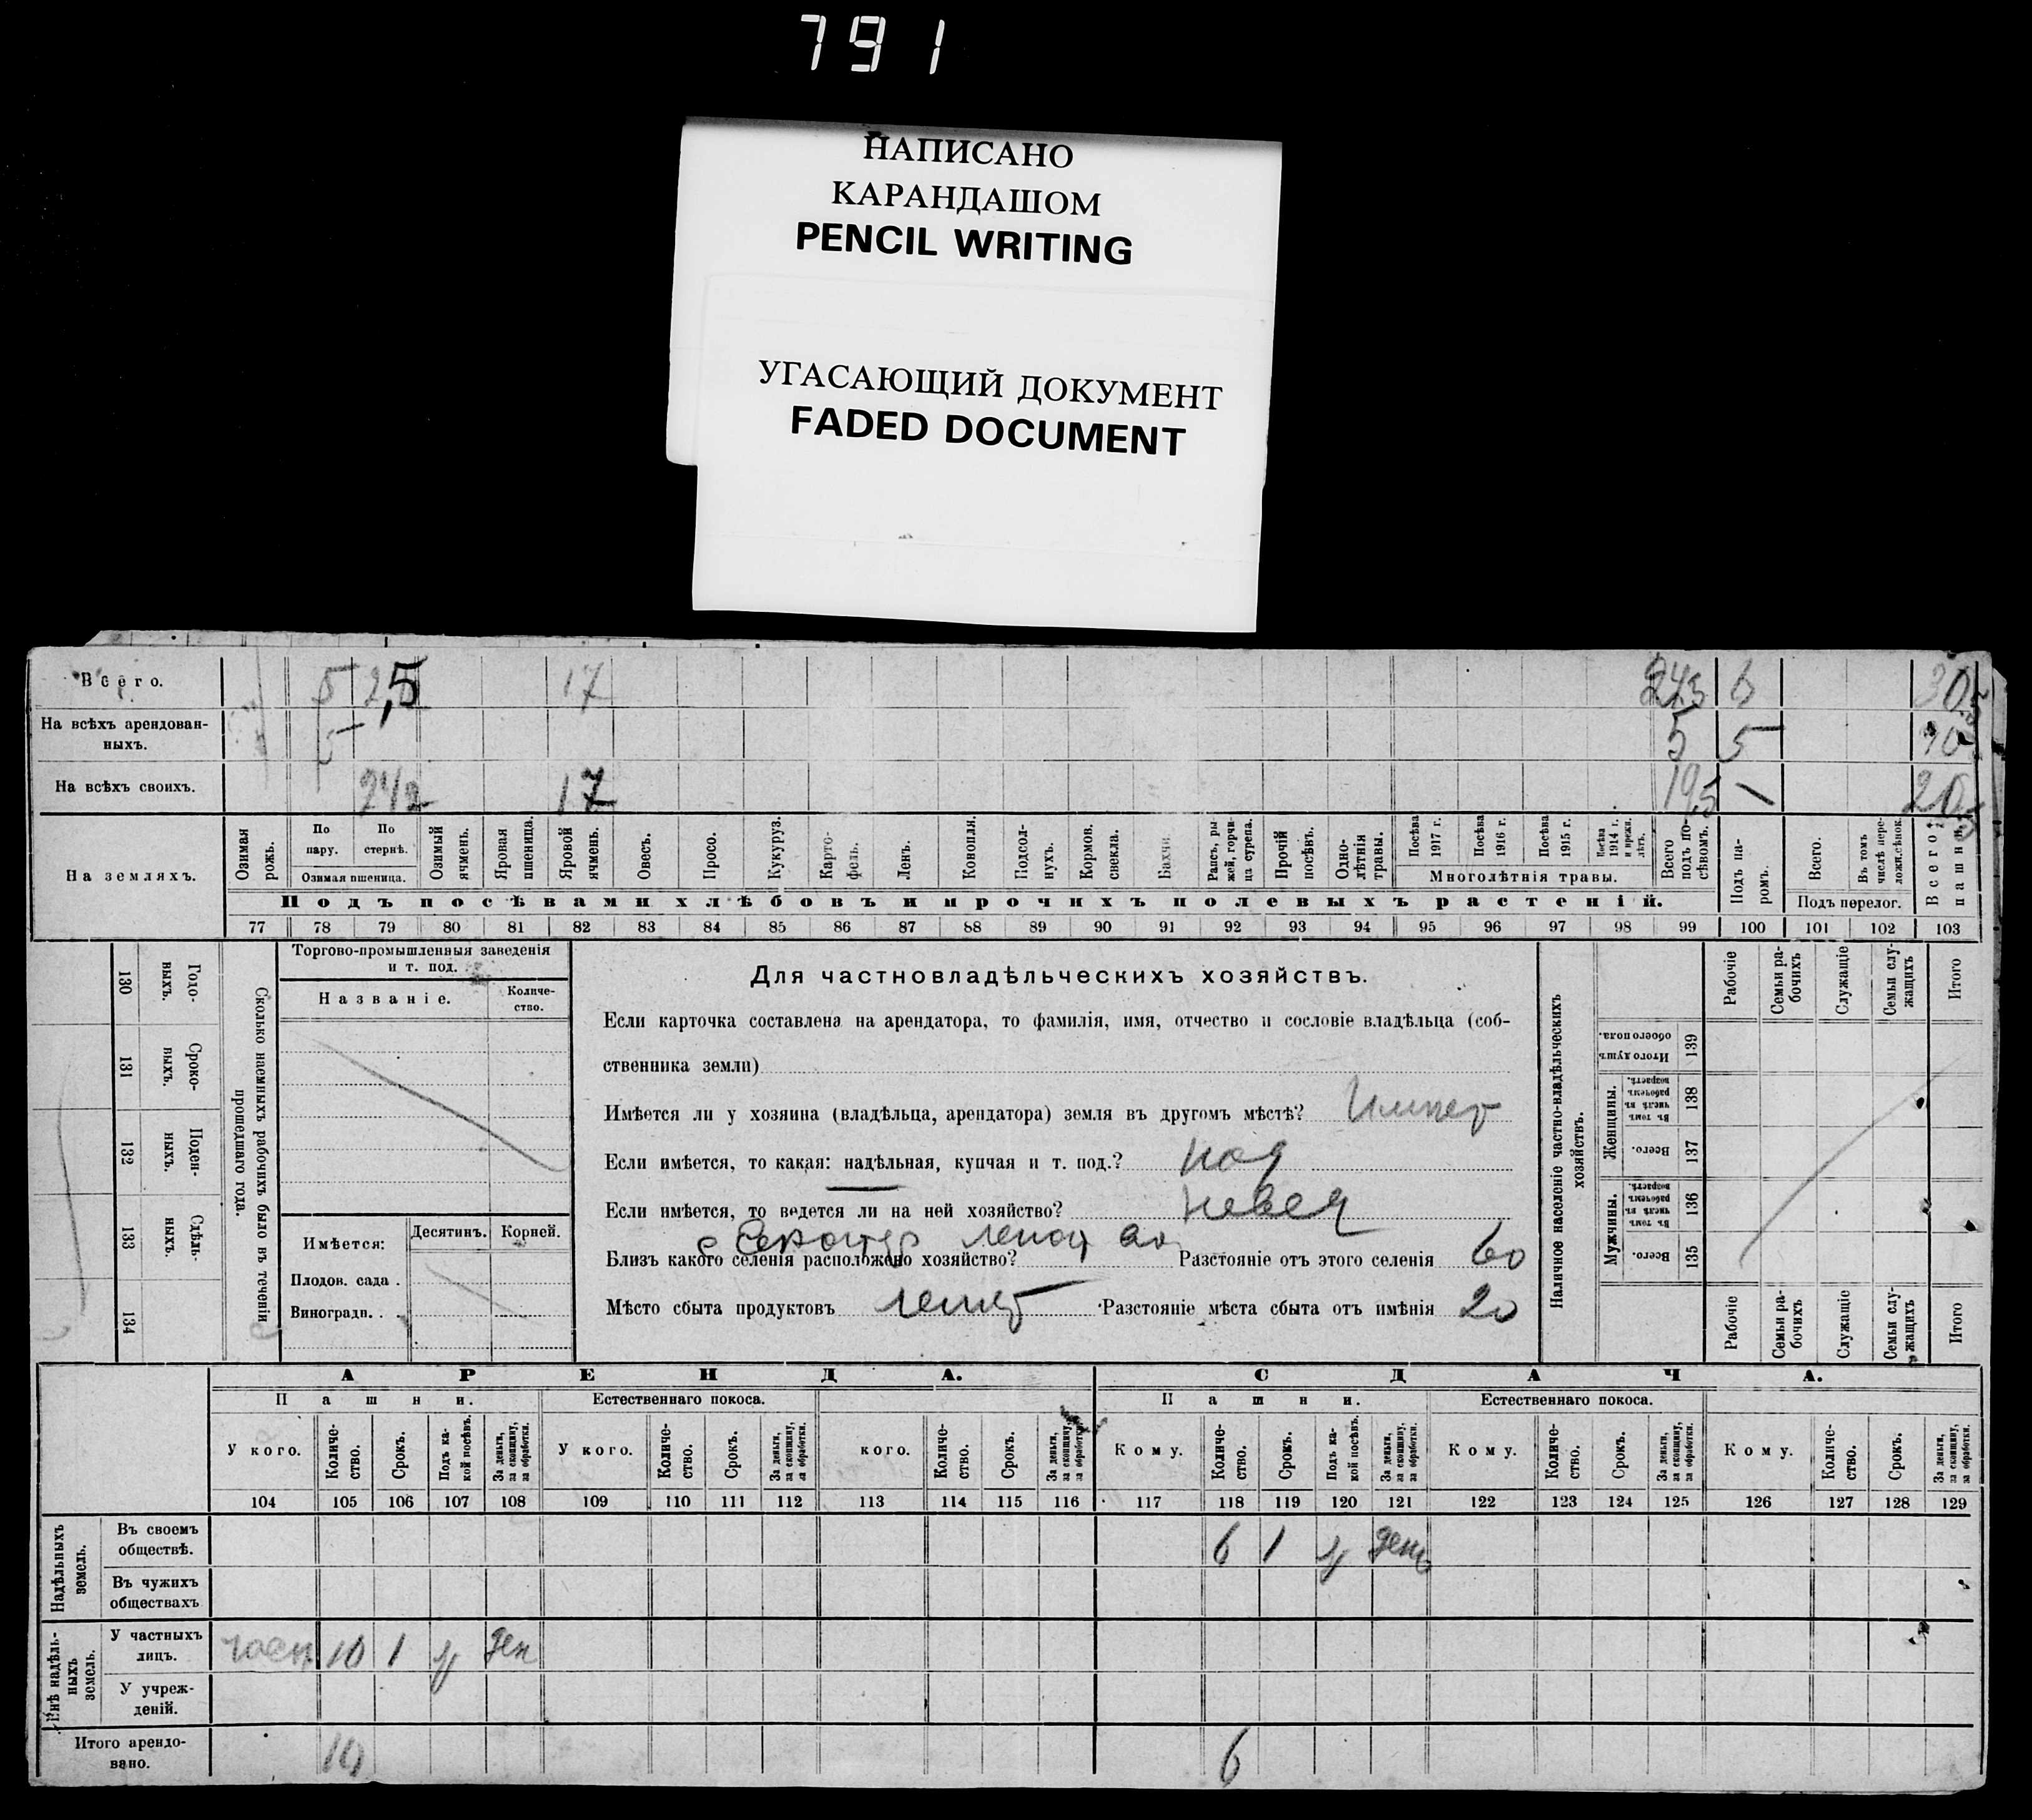 791
НАПИСАНО
КАРАНДАШОМ
PENCIL WRITING
УГАСАЮЩИЙ ДОКУМЕНТ
FADED DOCUMENT
Всего. 5 2,5 17 24,5 6 30,5
На всѣхъ арендован-
ныхъ. 5 5 5 10
На всѣхъ своихъ. 2 1/2 17 19,5 1 20,5
На земляхъ.
Озимая рожь.
По пару.
По стернѣ.
Озимая пшеница.
Озимый ячмень.
Яровая пшеница.
Яровой ячмень.
Овесъ.
Просо.
Кукуруз.
Карто-
фель.
Ленъ.
Конопля.
Подсол-
нухъ.
Кормов. свекла.
Бахчи.
Рапсъ, ры-
жей, горчи-
ца сурепа.
Прочій посѣвъ.
Одно-
лѣтнія травы.
Посѣва 1917 г.
Посѣва 1916 г.
Посѣва 1915 г.
Посѣва 1914 г. и прежн. лѣтъ.
Многолѣтнія травы.
Всего подъ по-
сѣвомъ.
Подъ па-
ромъ.
Всего.
Въ томъ числѣ пере-
ложн.сѣнок.
Подъ перелог.
Всего пашни
Подъ посѣвами хлѣбовъ и прочихъ полевыхъ растеній.
77 78 79 80 81 82 83 84 85 86 87 88 89 90 91 92 93 94 95 96 97 98 99 100 101 102 103
130 Годо-
выхъ.
131 Сроко-
выхъ.
132 Поден-
ныхъ.
133 Сдѣль-
ныхъ.
134
Сколько наемныхъ рабочихъ было въ теченіи
прошедшаго года.
Торгово-промышленныя заведенія
и т. под.
Названіе.
Количе-
ство.
Имѣется:
Десятинъ. Корней.
Плодов. сада .
Виноградн. .
Для частновладѣльческихъ хозяйствъ.
Если карточка составлена на арендатора, то фамилія, имя, отчество и сословіе владѣльца (соб-
ственника земли)
Имѣется ли у хозяина (владѣльца, арендатора) земля въ другомъ мѣстѣ?
Если имѣется, то какая: надѣльная, купчая и т. под.? над
Если имѣется, то ведется ли на ней хозяйство?
Близъ какого селенія расположено хозяйство? Разстояніе отъ этого селенія 60
Мѣсто сбыта продуктовъ Разстояніе мѣста сбыта отъ имѣнія 20
Наличное населеніе частно-владѣльческихъ
хозяйствъ.
Рабочіе
Семьи ра-
бочихъ
Служащіе
Семьи слу-
жащихъ
Итого
Итого душъ обоего пола. 139
Женщины.
Въ томъ числѣ въ рабочемъ возрастѣ. 138
Всего. 137
Мужчины.
Въ томъ числѣ въ рабочемъ возрастѣ. 136
Всего. 135
Рабочіе
Семьи ра-
бочихъ
Служащіе
Семьи слу-
жащихъ
Итого
АРЕНДА. СДАЧА.
Пашни. Естественнаго покоса. Пашни. Естественнаго покоса.
У кого. Количе-
ство. Срокъ. Подъ ка-
кой посѣвъ. За деньги, за скопщину, за обработки.
У кого. Количе-
ство. Срокъ. За деньги, за скопщину, за обработки.
кого. Количе-
ство. Срокъ. За деньги, за скопщину, за обработки.
Кому. Количе-
ство. Срокъ. Подъ ка-
кой посѣвъ. За деньги, за скопщину, за обработки.
Кому. Количе-
ство. Срокъ. За деньги, за скопщину, за обработки.
Кому. Количе-
ство. Срокъ. За деньги, за скопщину, за обработки.
104 105 106 107 108 109 110 111 112 113 114 115 116 117 118 119 120 121 122 123 124 125 126 127 128 129
Надѣльныхъ земель.
Въ своемъ
обществѣ. 6 1 день
Въ чужихъ
обществахъ
Внѣ надѣль-
ныхъ земель.
У частныхъ
лицъ. част 10 1 ден
У учреж-
деній.
Итого арендо-
вано. 10 6